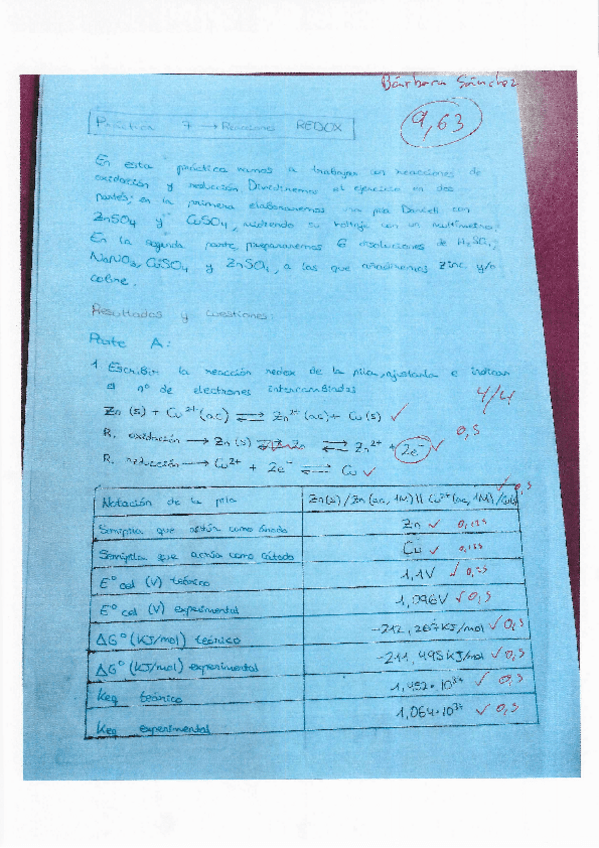 Bárbara Sánchez
9,63
Práctica 7 → Reacciones REDOX
En esta práctica vamos a trabajar con reacciones de
oxidación y reducción. Dividiremos el ejercicio en dos
partes: en la primera elaboraremos una pila Daniell con
ZnSO4 y CuSO4, midiendo su voltaje con un multímetro.
En la segunda parte, prepararemos 6 disoluciones de H2SO4,
NaNO3, CuSO4 y ZnSO4, a las que añadiremos zinc y/o
cobre.
Resultados y cuestiones:
Parte A:
1 Escribir la reacción redox de la pila, ajustarla e indicar
el nº de electrones intercambiados
4/4
Zn (s) + Cu2+ (ac) ⇄ Zn2+ (ac) + Cu (s) ✓
R. oxidación → Zn (s) ⇄ Zn2+ + 2e- ✓ 0,5
R. reducción → Cu2+ + 2e- ⇄ Cu ✓
Notación de la pila Zn(s) / Zn (ac, 1M) || Cu2+ (ac, 1M) / Cu(s) ✓ 0,5
Semipila que actúa como ánodo Zn ✓ 0,125
Semipila que actúa como cátodo Cu ✓ 0,125
Eº cel (V) teórico 1,1V ✓ 0,25
Eº cel (V) experimental 1,096V ✓ 0,5
ΔGº (KJ/mol) teórico -212,267 KJ/mol ✓ 0,5
ΔGº (KJ/mol) experimental -211,495 KJ/mol ✓ 0,5
Keq teórico 1,452·10^37 ✓ 0,5
Keq experimental 1,064·10^37 ✓ 0,5